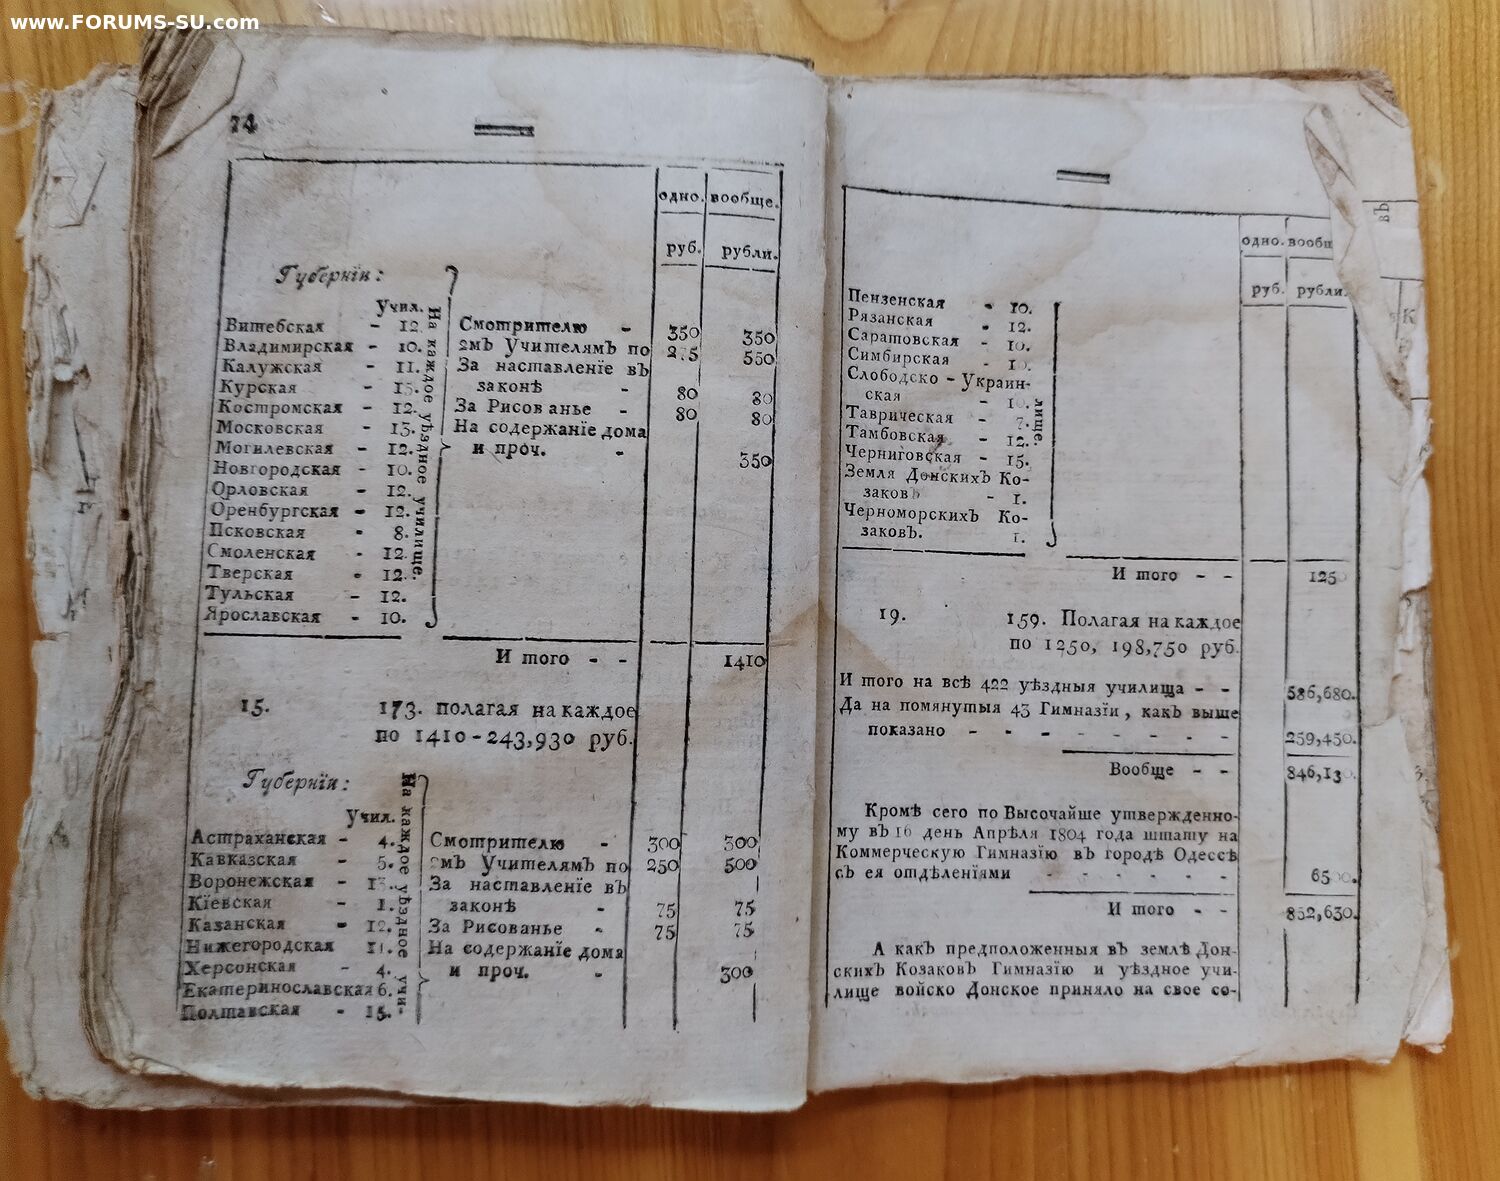 www.FORUMS-SU.com
74
одно. вообще.
руб. рубли.
Губернїи:
Учил.
На каждое уѣздное училище.
Витебская - 12. Смотрителю - 350 350
Владимирская - 10. 2мЪ УчителямЪ по 275 550
Калужская - 11. За наставленїе вЪ
Курская - 15. законѣ - 80 80
Костромская - 12. За Рисованье - 80 80
Московская - 13. На содержанїе дома
Могилевская - 12. и проч. - 350
Новгородская - 10.
Орловская - 12.
Оренбургская - 12.
Псковская - 8.
Смоленская - 12.
Тверская - 12.
Тульская - 12.
Ярославская - 10.
И того - - 1410
15. 173. полагая на каждое
по 1410-243,930 руб.
Губернїи:
Учил.
На каждое уѣздное учи-
Астраханская - 4. Смотрителю - 300 300
Кавказская - 5. 2мЪ УчителямЪ по 250 500
Воронежская - За наставленїе вЪ
Кїевская - 1. законѣ - 75 75
Казанская - 12. За Рисованье - 75 75
Нижегородская 11. На содержанїе дома
Херсонская - 4. и проч. - 300
Екатеринославская 6.
Полтавская - 15.
одно. вообщ
руб. рубли.
лище.
Пензенская - 10.
Рязанская - 12.
Саратовская - 10.
Симбирская - 10.
Слободско - Украин-
ская - 10.
Таврическая - 7.
Тамбовская - 12.
Черниговская - 15.
Земля ДонскихЪ Ко-
заковЪ - 1.
ЧерноморскихЪ Ко-
заковЪ. 1.
И того - - 1250
19. 159. Полагая на каждое
по 1250, 198,750 руб.
И того на всѣ 422 уѣздныя училища - - 586,680.
Да на помянутыя 43 Гимназїи, какЪ выше
показано - - - - - - - 259,450.
Вообще - - 846,130.
Кромѣ сего по Высочайше утвержденно-
му вЪ 16 день Апрѣля 1804 года штату на
Коммерческую Гимназїю вЪ городѣ Одессѣ
сЪ ея отдѣленїями - - - - - - 6500.
И того - - 852,630.
А какЪ предположенныя вЪ землѣ Дон-
скихЪ КозаковЪ Гимназїю и уѣздное учи-
лище войско Донское приняло на свое со-
вЪ
К